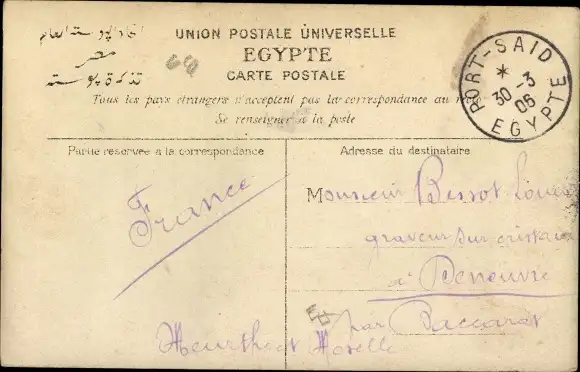 اتحاد البوستة العام
مصر
تذكرة بوستة
UNION POSTALE UNIVERSELLE
EGYPTE
CARTE POSTALE
Tous les pays étrangers n'acceptent pas la correspondance au
Se renseigner à la poste
PORT-SAID
30-3
06
EGYPTE
Partie réservée à la correspondance
Adresse du destinataire
France
Monsieur Bessot
graveur sur
à Deneuvre
par Baccarat
Meurthe et Moselle